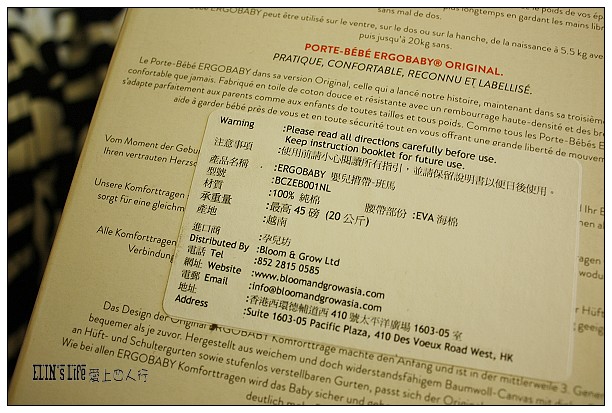 ERGOBABY peut être utilisé sur le ventre, sur le dos ou sur la hanche, de la naissance à 5.5 kg
puis jusqu'à 20kg sans.
sans mal de dos.
plus longtemps en gardant les mains
PORTE-BÉBÉ ERGOBABY® ORIGINAL.
PRATIQUE, CONFORTABLE, RECONNU ET LABELLISÉ.
Le Porte-Bébé ERGOBABY dans sa version Original, celle qui a lancé notre histoire, maintenant dans sa troisième
confortable que jamais. Fabriqué en toile de coton douce et résistante avec un rembourrage haute-densité et des
s'adapte parfaitement aux parents comme aux enfants de toutes tailles et tous poids. Comme tous les Porte-Bébés
aide à garder bébé près de vous et en toute sécurité tout en vous offrant une grande liberté de
Warning :Please read all directions carefully before use.
Keep instruction booklet for future use.
注意事項 :使用前請小心閱讀所有指引，並請保留說明書以便日後使用。
產品名稱 :ERGOBABY 嬰兒揹帶-斑馬
型號 :BCZEB001NL
材質 :100% 純棉 腰帶部份 :EVA 海棉
承重量 :最高 45 磅 (20 公斤)
產地 :越南
進口商 :孕兒坊
Distributed By :Bloom & Grow Ltd
電話 Tel :852 2815 0585
網址 Website :www.bloomandgrowasia.com
電郵 Email :info@bloomandgrowasia.com
地址 :香港西環德輔道西 410 號太平洋廣場 1603-05 室
Address :Suite 1603-05 Pacific Plaza, 410 Des Voeux Road West, HK
Vom Moment der
Ihren vertrauten
Unsere Komforttragen
sorgt für eine
Alle Komforttragen
Verbindung
Das Design der Original ERGOBABY Komforttrage machte den Anfang und ist in der mittlerweile 3.
bequemer als je zuvor. Hergestellt aus weichem und doch widerstandsfähigem Baumwoll-Canvas mit
an Hüft- und Schultergurten sowie stufenlos verstellbaren Gurten, passt sich der
Wie bei allen ERGOBABY Komforttragen wird das Baby sicher und
deutlich
ELIN's Life 愛上四人行